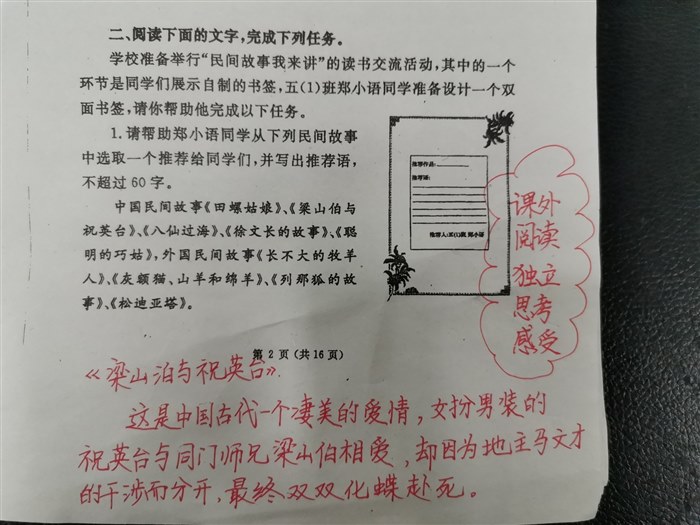 二、阅读下面的文字,完成下列任务。
学校准备举行“民间故事我来讲”的读书交流活动,其中的一个
环节是同学们展示自制的书签,五(1)班郑小语同学准备设计一个双
面书签,请你帮助他完成以下任务。
1.请帮助郑小语同学从下列民间故事
中选取一个推荐给同学们,并写出推荐语,
不超过60字。
中国民间故事《田螺姑娘》、《梁山伯与
祝英台》、《八仙过海》、《徐文长的故事》、《聪
明的巧姑》,外国民间故事《长不大的牧羊
人》、《灰额猫、山羊和绵羊》、《列那狐的故
事》、《松迪亚塔》。
推荐作品:
推荐语:
推荐人:五(1)班 郑小语
课外
阅读
独立
思考
感受
第2页(共16页)
《梁山泊与祝英台》
这是中国古代一个凄美的爱情,女扮男装的
祝英台与同门师兄梁山伯相爱,却因为地主马文才
的干涉而分开,最终双双化蝶赴死。